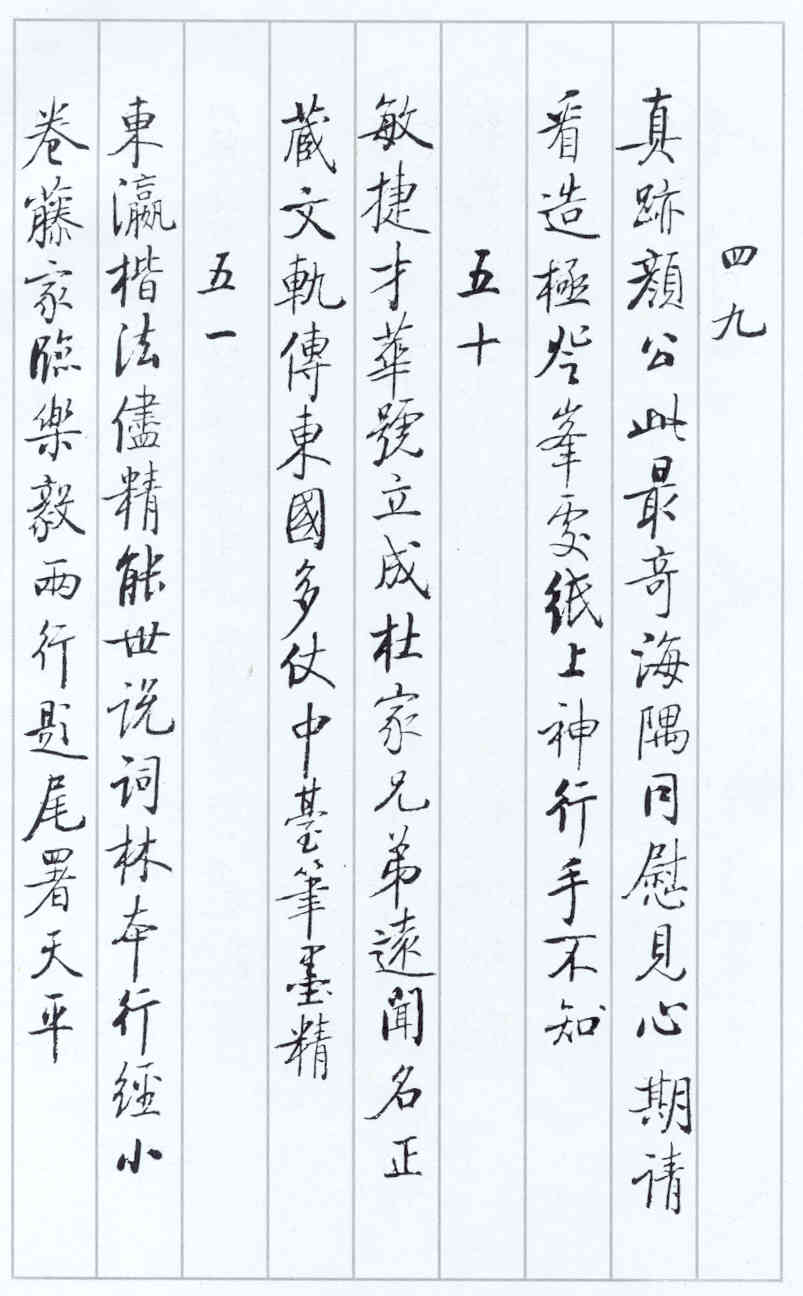 四九
真跡顏公此最奇海隅同慰見心期请
看造極登峯處纸上神行手不知
五十
敏捷才華號立成杜家兄弟遠聞名正
蔵文軌傳東國多仗中臺筆墨精
五一
東瀛楷法儘精能世说詞林本行經小
卷藤家臨樂毅兩行題尾署天平